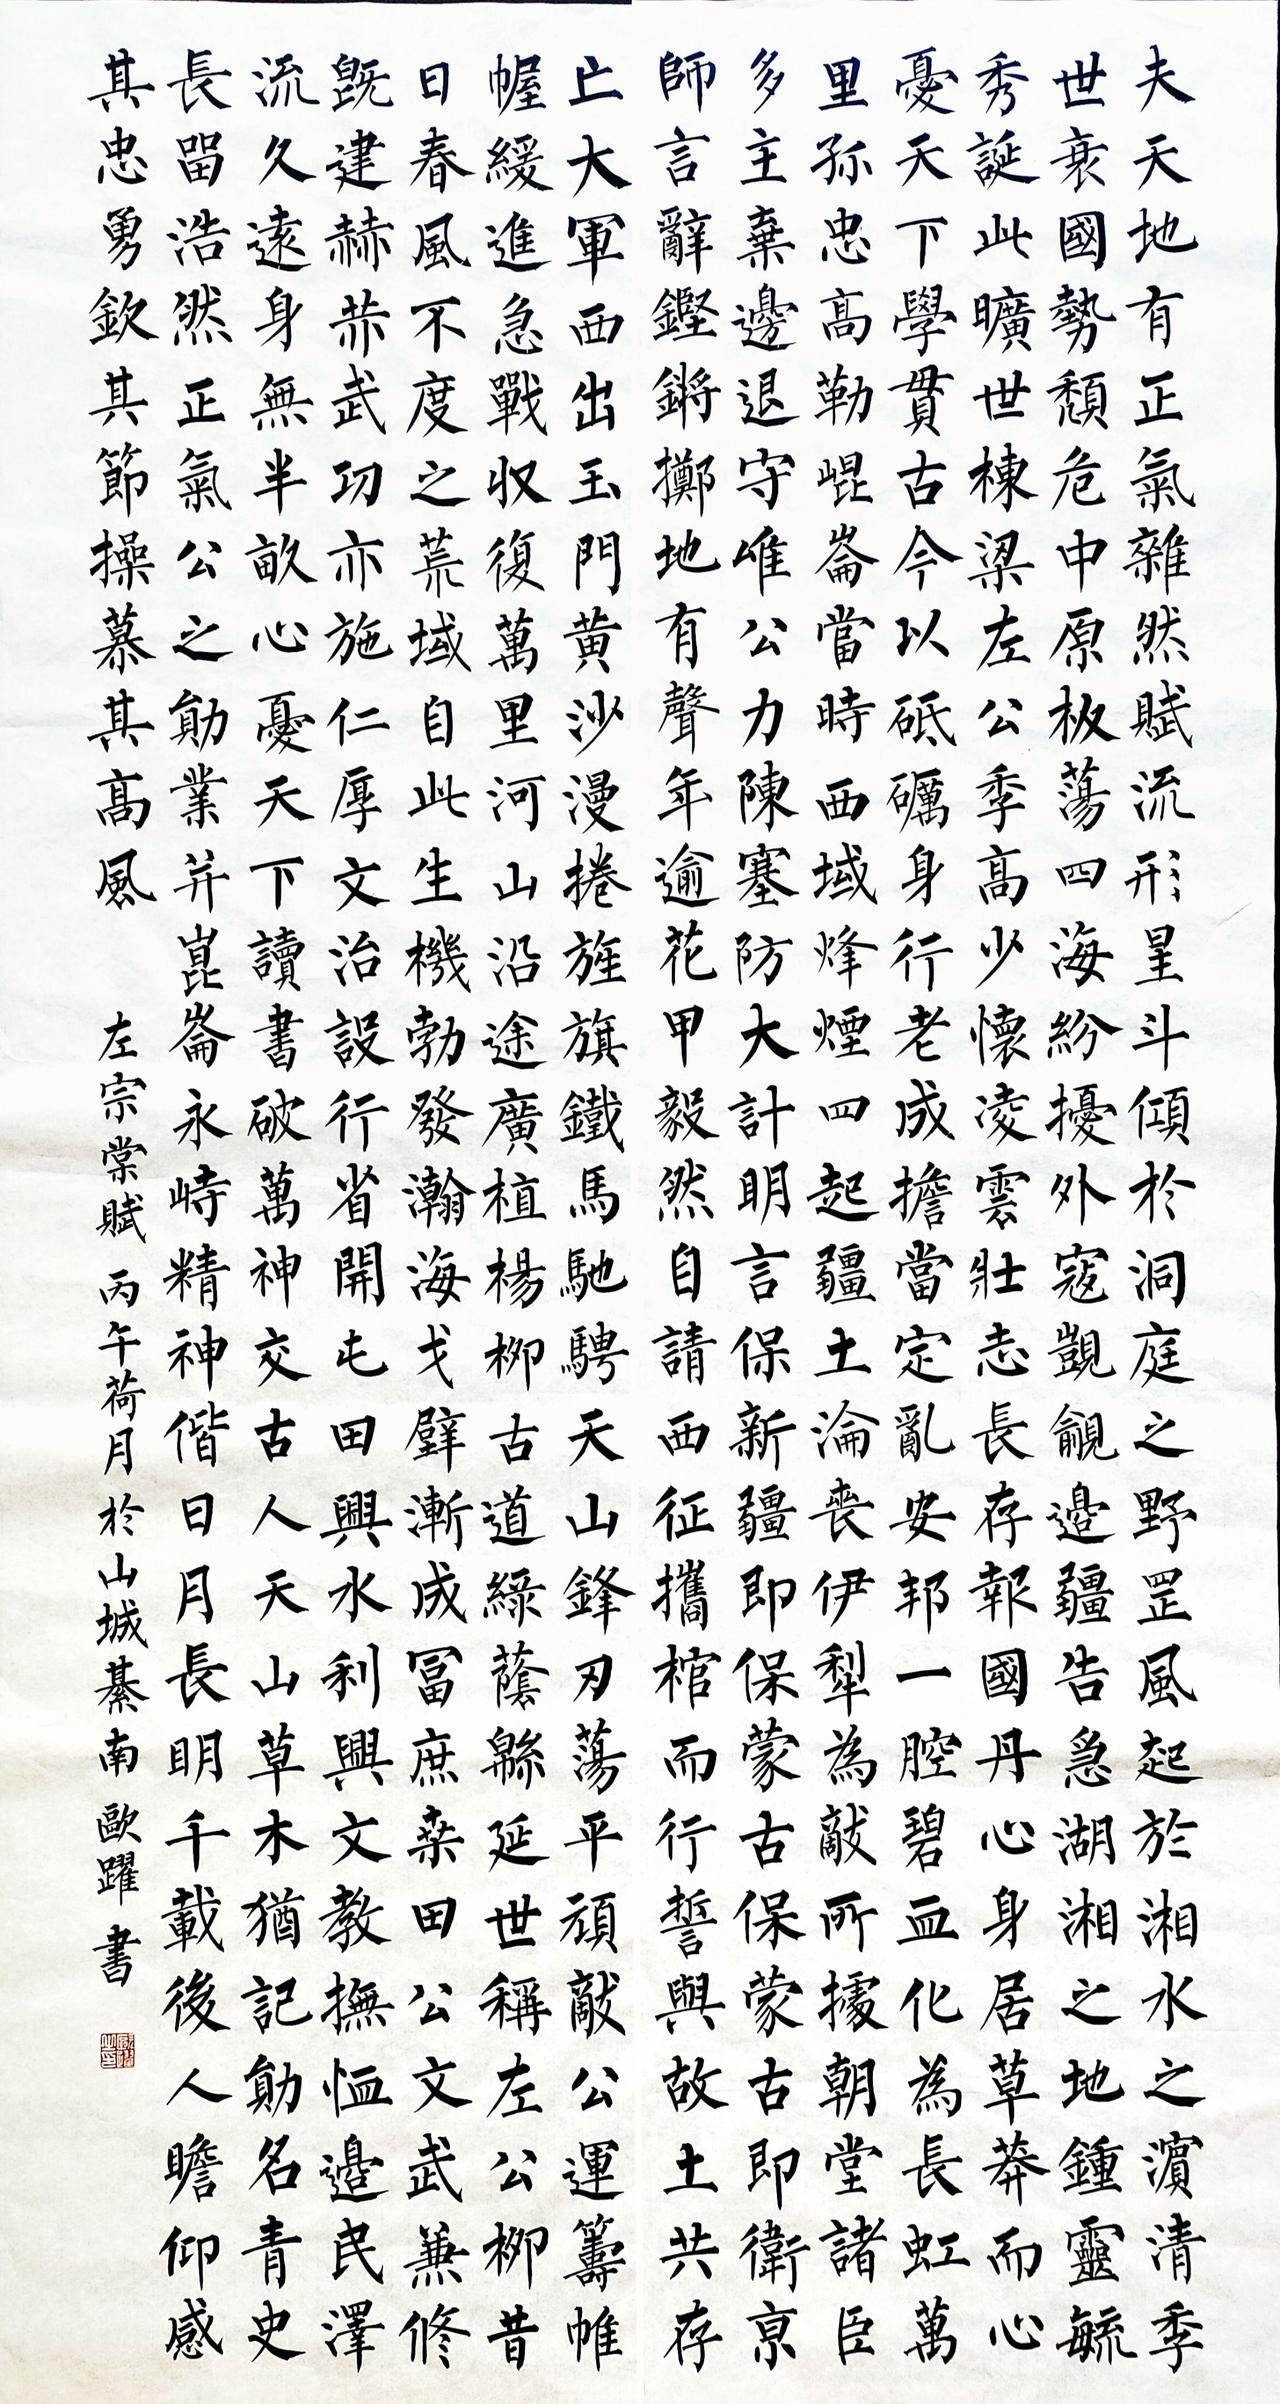 夫天地有正氣雜然賦流形星斗傾於洞庭之野罡風起於湘水之濵清季
世衰國勢頹危中原板蕩四海紛擾外寇覬覦邊疆告急湖湘之地鍾靈毓
秀誕此曠世棟梁左公季高少懷凌雲壯志長存報國丹心身居草莽而心
憂天下學貫古今以砥礪身行老成擔當定亂安邦一腔碧血化為長虹萬
里孫忠高勒崐崙當時西域烽煙四起疆土淪喪伊犁為敵所據朝堂諸臣
多主棄邊退守唯公力陳塞防大計明言保新疆即保蒙古保蒙古即衛京
師言辭鏗鏘擲地有聲年逾花甲毅然自請西征攜棺而行誓與故土共存
亡大軍西出玉門黄沙漫捲旌旗鐵馬馳騁天山鋒刃蕩平頑敵公運籌帷
幄緩進急戰収復萬里河山沿途廣植楊柳古道綠蔭緜延世稱左公柳昔
日春風不度之荒域自此生機勃發瀚海戈壁漸成冨庶桒田公文武兼修
既建赫赫武功亦施仁厚文治設行省開屯田興水利興文教撫恤邊民澤
流久遠身無半畝心憂天下讀書破萬神交古人天山草木猶記勛名青史
長留浩然正氣公之勛業并崑崙永峙精神偕日月長明千載後人瞻仰感
其忠勇欽其節操慕其高風
左宗棠賦 丙午荷月於山城綦南 歐躍 書